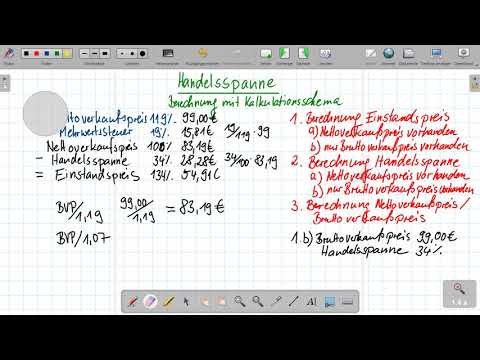 Handelsspanne
Berechnung mit Kalkulationsschema
ttoverkaufspreis 119% 99,00€
Mehrwertsteuer 19% 15,81€ 19/119 · 99
Nettoverkaufspreis 100% 83,19€
- Handelsspanne 34% 28,28€ 34/100 · 83,19
= Einstandspreis 134% 54,91€
BVP/1,19 99,00/1,19 = 83,19€
BVP/1,07
1. Berechnung Einstandspreis
a) Nettoverkaufspreis vorhanden
b) nur Bruttoverkaufspreis vorhanden
2. Berechnung Handelsspanne
a) Nettoverkaufspreis vorhanden
b) nur Bruttoverkaufspreis vorhanden
3. Berechnung Nettoverkaufspreis/
Bruttoverkaufspreis
1. b) Bruttoverkaufspreis 99,00€
Handelsspanne 34%